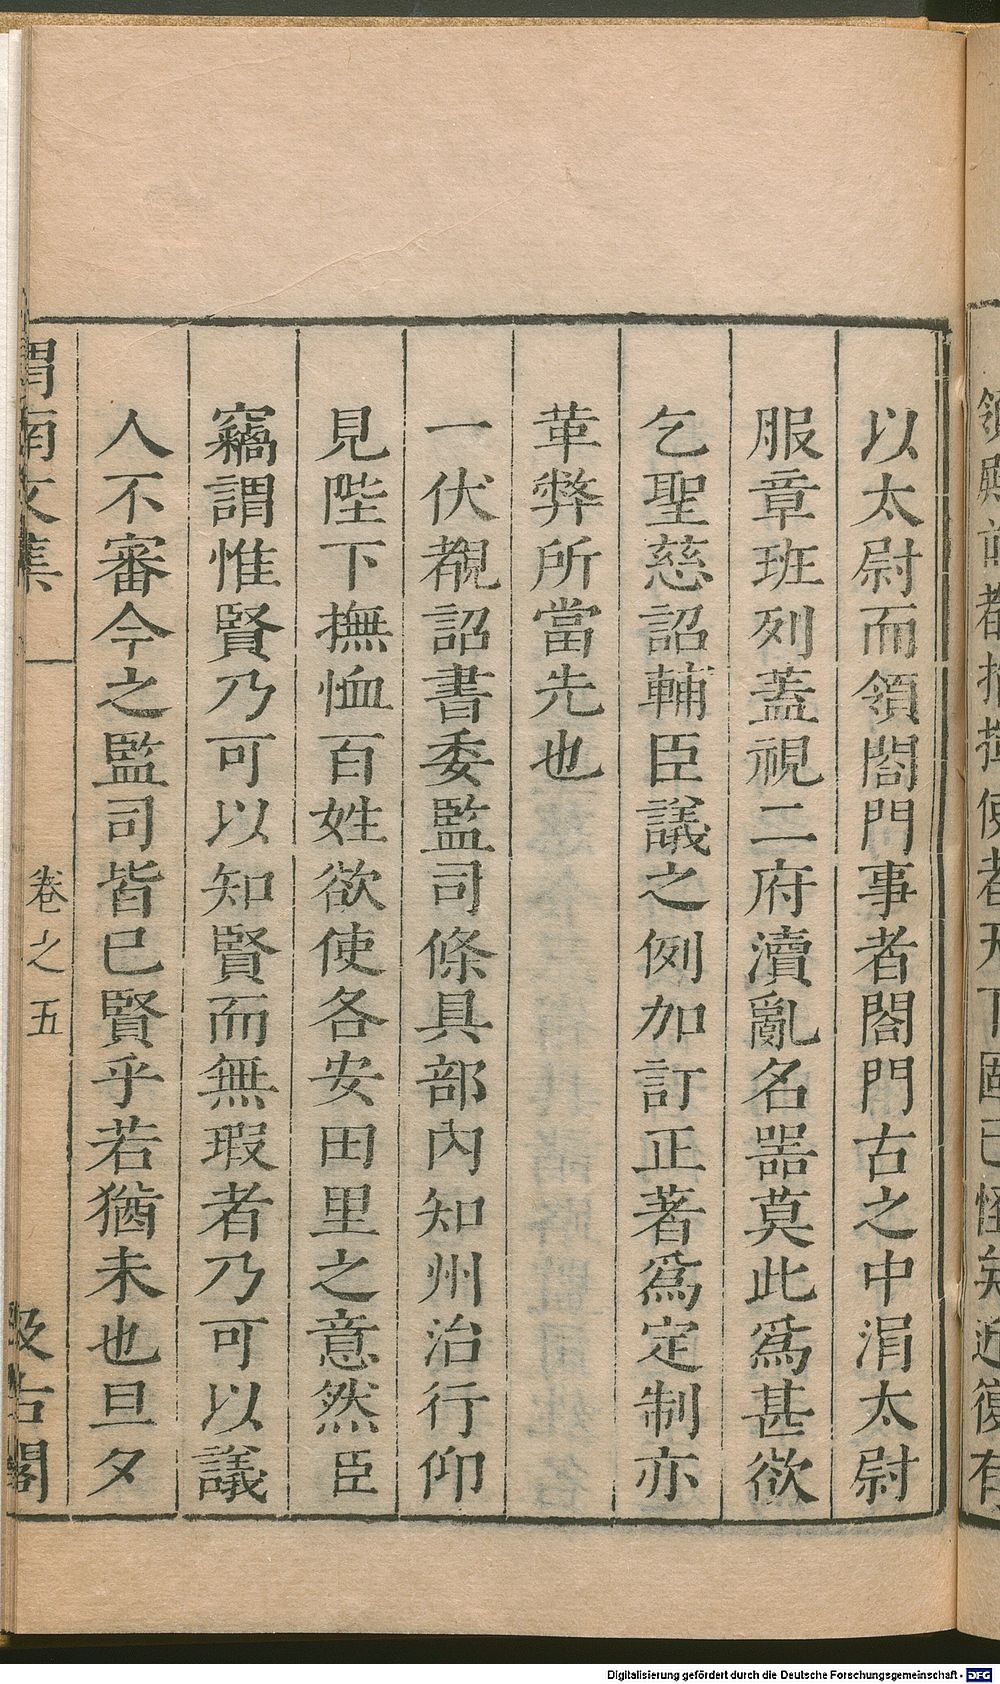 以太尉而領閤門事者閤門古之中涓太尉
服章班列蓋視二府瀆亂名器莫此爲甚欲
乞聖慈詔輔臣議之例加訂正著爲定制亦
革弊所當先也
一伏覩詔書委監司條具部內知州治行仰
見陛下撫恤百姓欲使各安田里之意然臣
竊謂惟賢乃可以知賢而無瑕者乃可以議
人不審今之監司皆巳賢乎若猶未也旦夕
渭南文集
卷之五
汲古閣
Digitalisierung gefördert durch die Deutsche Forschungsgemeinschaft - DFG